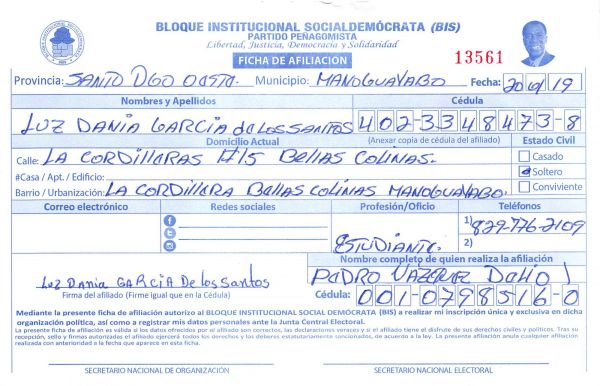 BLOQUE INSTITUCIONAL SOCIALDEMÓCRATA (BIS)
PARTIDO PEÑAGOMISTA
Libertad, Justicia, Democracia y Solidaridad
FICHA DE AFILIACIÓN
13561
Provincia: SANTO DGO OESTE. Municipio: MANOGUAYABO Fecha: 20/9/19
Nombres y Apellidos Cédula
LUZ DANIA GARCIA de LOS SANTOS 402-3348473-8
Domicilio Actual (Anexar copia de cédula del afiliado) Estado Civil
Calle: LA CORDILLERAS #15 Bellas COLINAS. Casado
#Casa / Apt. / Edificio: Soltero
Barrio / Urbanización: LA CORDILLERA Bellas COLINAS MANOGUAYABO. Conviviente
Correo electrónico Redes sociales Profesión/Oficio Teléfonos
1) 829-776-2109
ESTUDIANTE 2)
Nombre completo de quien realiza la afiliación
LUZ DANIA GARCIA De los Santos PEDRO VAZQUEZ
Firma del afiliado (Firme igual que en la Cédula) Cédula: 001-0798516-0
Mediante la presente ficha de afiliación autorizo al BLOQUE INSTITUCIONAL SOCIAL DEMÓCRATA (BIS) a realizar mi inscripción única y exclusiva en dicha
organización política, así como a registrar mis datos personales ante la Junta Central Electoral.
La presente ficha de afiliación es válida a los datos ofrecidos por el afiliado son correctos, las declaraciones veraces y si el afiliado tiene el disfrute de sus derechos civiles y políticos. Tras su
recepción, sello y firmas autorizadas el afiliado ejercerá todos los derechos y los deberes estatutariamente sancionados, de acuerdo a la ley. La presente afiliación anula cualquier afiliación
realizada con anterioridad a la fecha que aparece en esta ficha.
SECRETARIO NACIONAL DE ORGANIZACIÓN SECRETARIO NACIONAL ELECTORAL